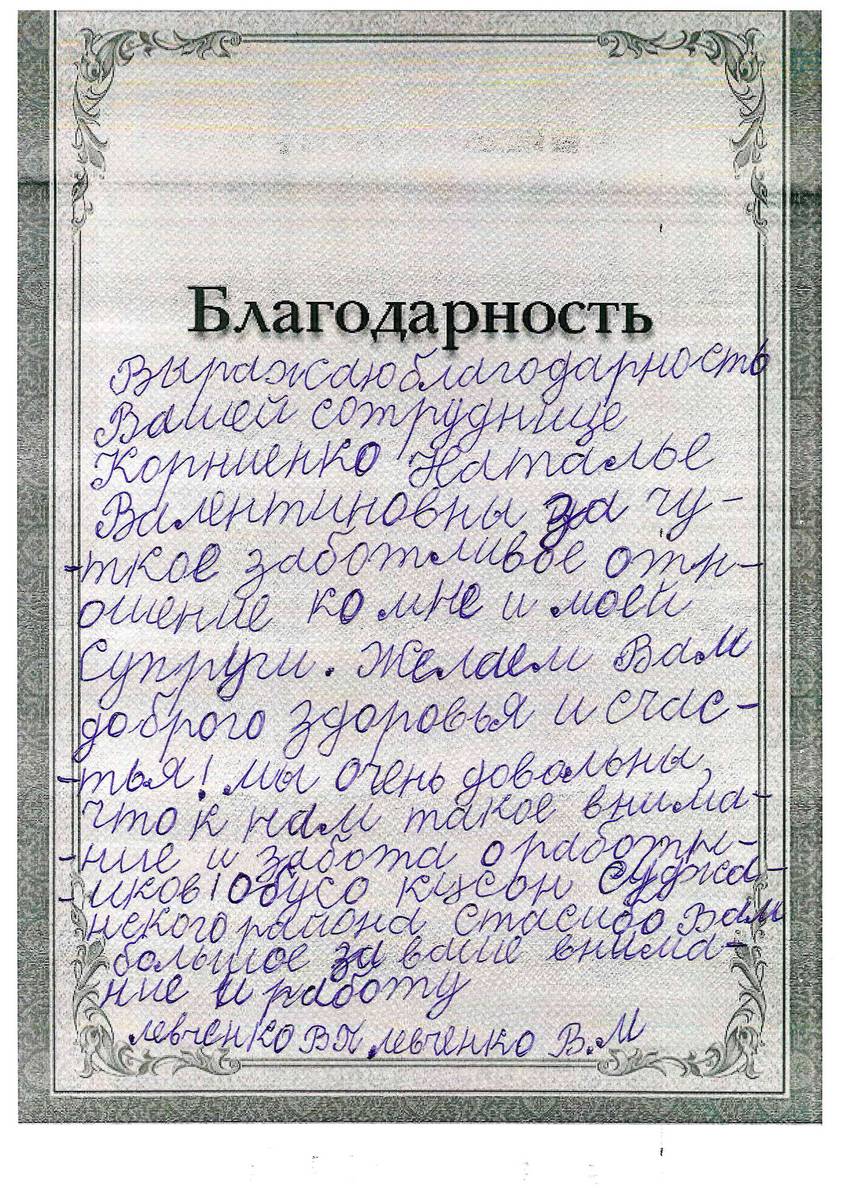 Благодарность
Выражаю благодарность
Вашей сотруднице
Корниенко Наталье
Валентиновны за чу-
-ткое заботливое отн-
ошение ко мне и моей
Супруги. Желаем Вам
доброго здоровья и счас-
-тья! мы очень довольны,
что к нам такое внима-
-ние и забота о работн-
-иков! Обусо кцсон Суджа-
нского района Спасибо Вам
большое за ваше внима-
ние и работу
левченко В.П левченко В.М